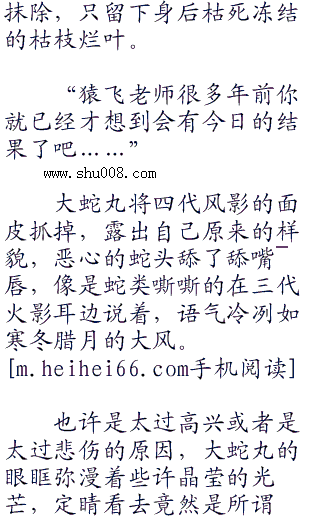 抹除，只留下身后枯死冻结
的枯枝烂叶。
“猿飞老师很多年前你
就已经才想到会有今日的结
果了吧……”
www.shu008.com
大蛇丸将四代风影的面
皮抓掉，露出自己原来的样
貌，恶心的蛇头舔了舔嘴
唇，像是蛇类嘶嘶的在三代
火影耳边说着，语气冷冽如
寒冬腊月的大风。
[m.heihei66.com手机阅读]
也许是太过高兴或者是
太过悲伤的原因，大蛇丸的
眼眶弥漫着些许晶莹的光
芒，定睛看去竟然是所谓